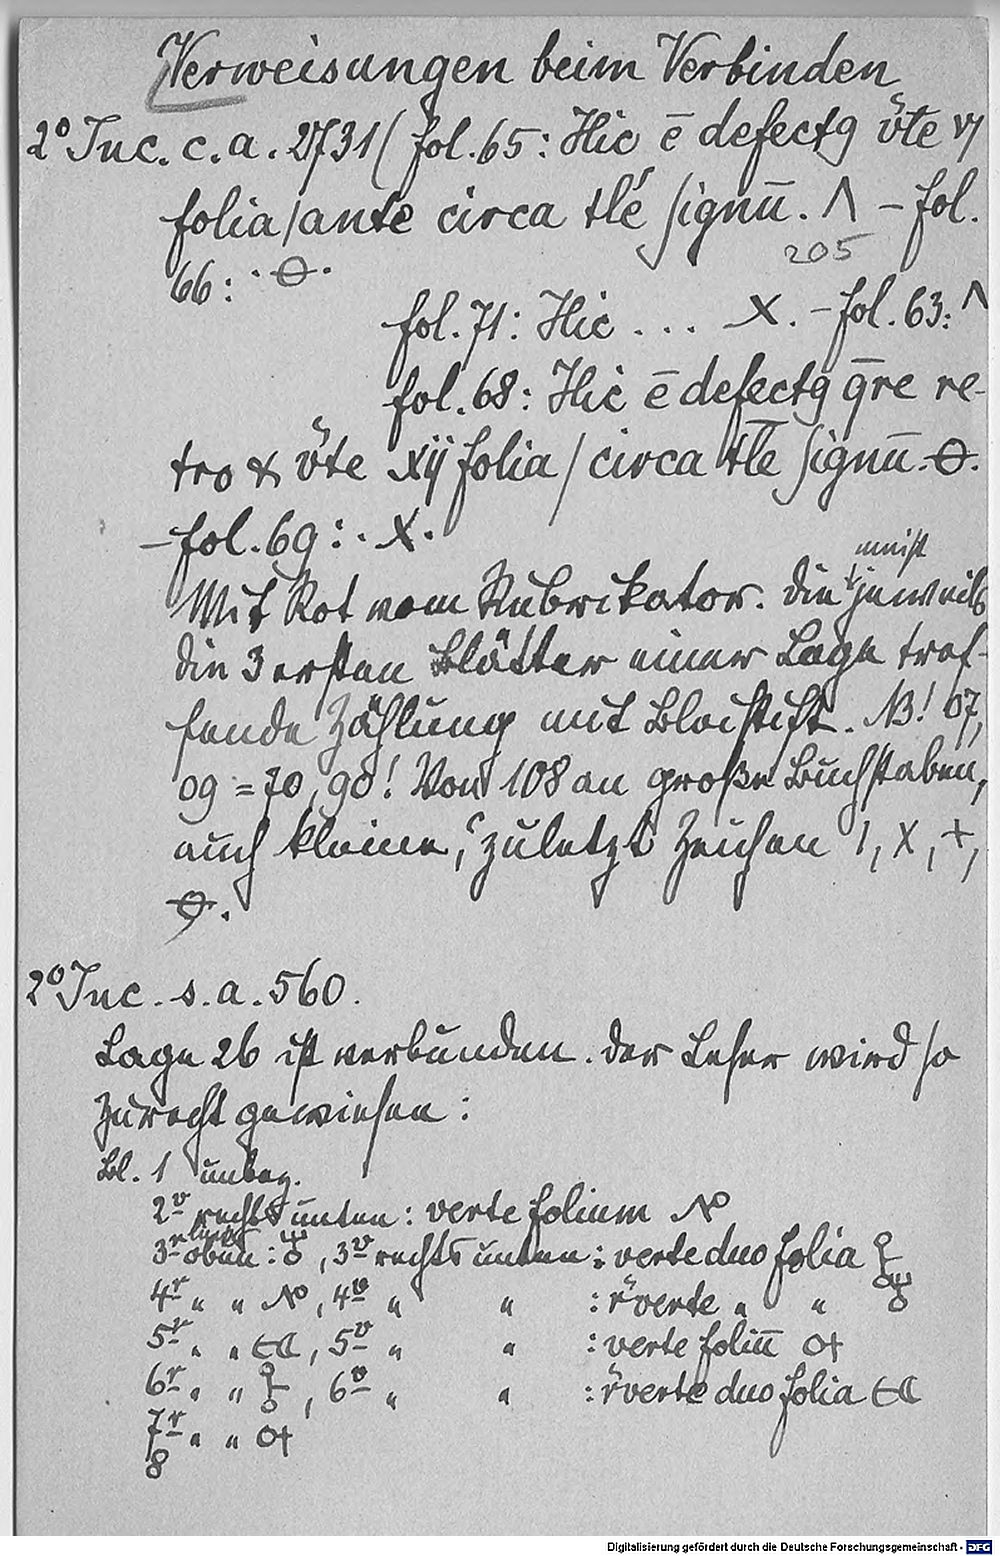 Verweisungen beim Verbinden
2° Inc. c. a. 2731 ( fol. 65: Hic ē defectꝯ v̊te vj
folia / ante circa tlē signū. Λ – fol.
205
66: · ꝋ ·
fol. 71: Hic ... X. – fol. 63: Λ
fol. 68: Hic ē defectꝯ q̄re re-
tro & v̊te xij folia / circa tlē signū. ꝋ.
– fol. 69: · X ·
meist
Mit Rot vom Rubrikator. Die jeweils
die 3 ersten Blätter einer Lage tref-
fende Zählung mit Bleistift. NB! 07,
09 = 70, 90! Von 108 an große Buchstaben,
auch kleine, zuletzt Zeichen 1, X, +,
ꝋ.
2° Inc. s. a. 560.
Lage 26 ist verbunden. Der Leser wird so
zurecht gewiesen:
Bl. 1 unbez.
2v rechts unten: verte folium No
links
3r oben: , 3v rechts unten: verte duo folia
4r " " No, 4v " " : rverte " "
5r " " , 5v " " : verte foliū
6r " " , 6v " " : rverte duo folia
7r " "
8
Digitalisierung gefördert durch die Deutsche Forschungsgemeinschaft - DFG